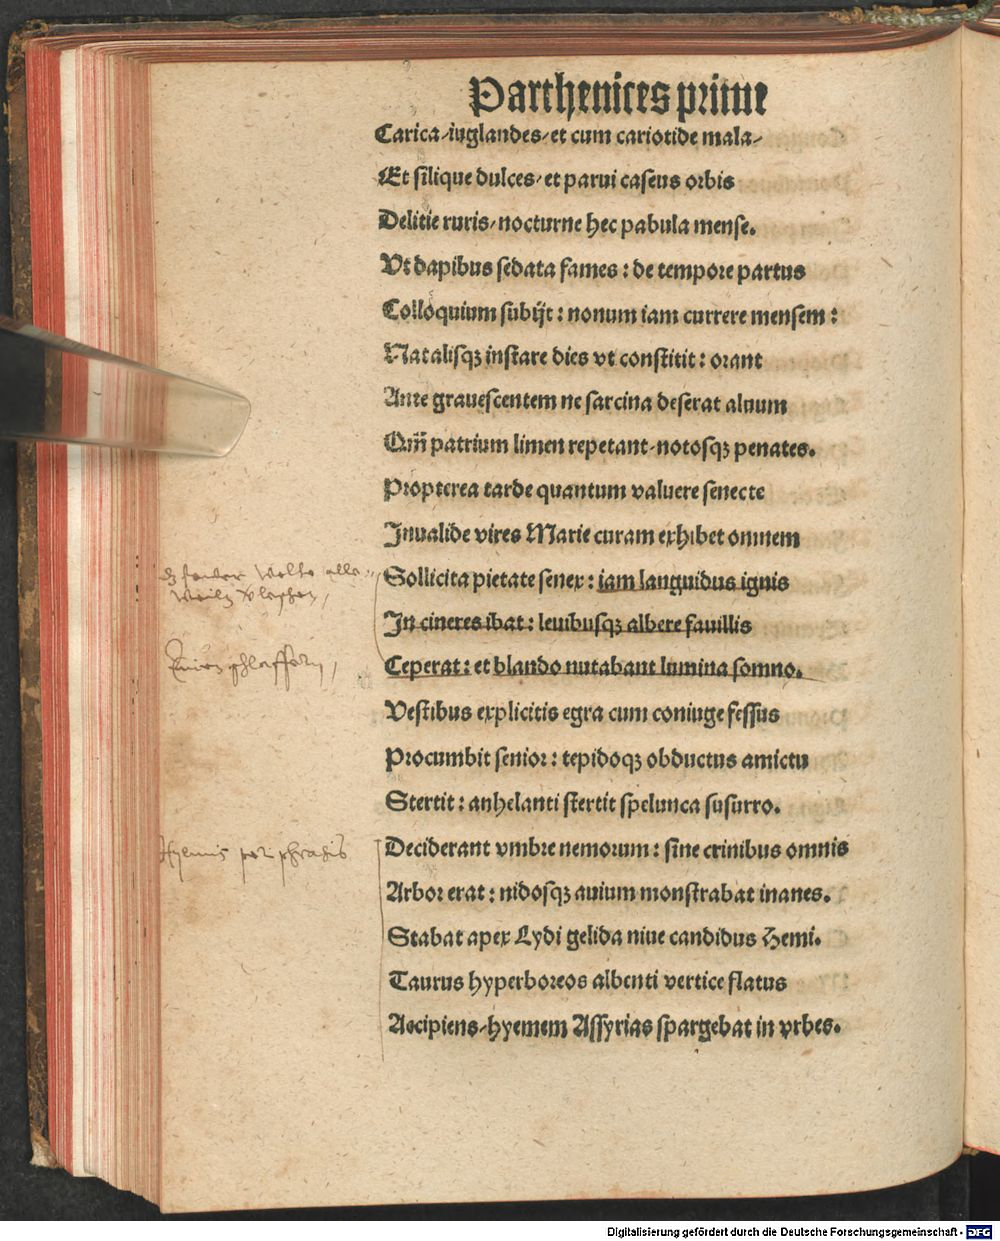 Parthenices prime
Carica/iuglandes/et cum cariotide mala/
Et silique dulces/et parui caseus orbis
Delitie ruris/nocturne hec pabula mense.
Ut dapibus sedata fames : de tempore partus
Colloquium subijt : nonum iam currere mensem :
Natalisqꝫ instare dies vt constitit : orant
Ante grauescentem ne sarcina deserat aluum
Qm̄ patrium limen repetant/notosqꝫ penates.
Propterea tarde quantum valuere senecte
Inualide vires Marie curam exhibet omnem
Sollicita pietate senex : iam languidus ignis
In cineres ibat : leuibusqꝫ albere fauillis
Ceperat : et blando nutabant lumina somno.
Vestibus explicitis egra cum coniuge fessus
Procumbit senior : tepidoqꝫ obductus amictu
Stertit : anhelanti stertit spelunca susurro.
Hyemis periphrasis
Deciderant vmbre nemorum : sine crinibus omnis
Arbor erat : nidosqꝫ auium monstrabat inanes.
Stabat apex Lydi gelida niue candidus Hemi.
Taurus hyperboreos albenti vertice flatus
Accipiens/hyemem Assyrias spargebat in vrbes.
Digitalisierung gefördert durch die Deutsche Forschungsgemeinschaft - DFG